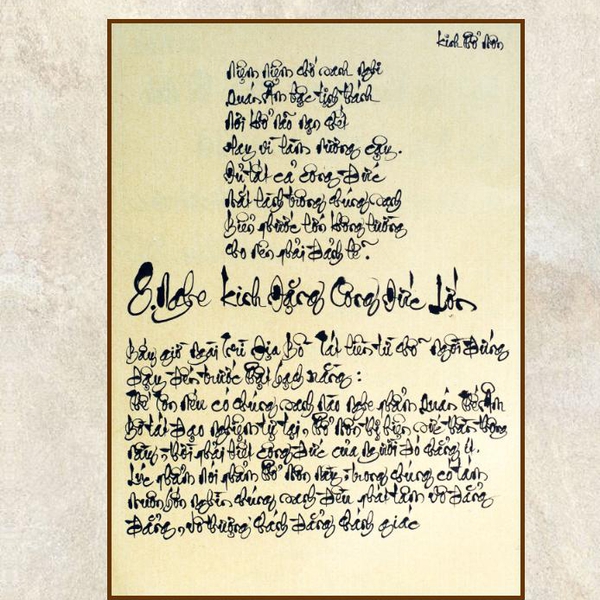 Kinh Phổ Môn
Niệm niệm chớ sanh nghi
Quán Âm bậc tịnh thánh
Nơi khổ não nạn chết
Hay vì làm nương cậy.
Đủ tất cả công đức
Mắt lành trông chúng sanh
Biển phước lớn không lường
Cho nên phải đảnh lễ.
8. Nghe Kinh Đặng Công Đức Lớn
Bấy giờ Ngài Trì Địa Bồ Tát liền từ chỗ ngồi đứng
dậy đến trước Phật bạch rằng:
Thế Tôn nếu có chúng sanh nào nghe phẩm Quán Thế Âm
Bồ tát đạo nghiệp tự tại, Phổ môn thị hiện sức thần thông
này, thời phải biết công đức của người đó chẳng ít.
Lúc Phật nói phẩm Phổ môn này, trong chúng có tám
muôn bốn nghìn chúng sanh đều phát tâm vô đẳng
đẳng, vô thượng chánh đẳng chánh giác